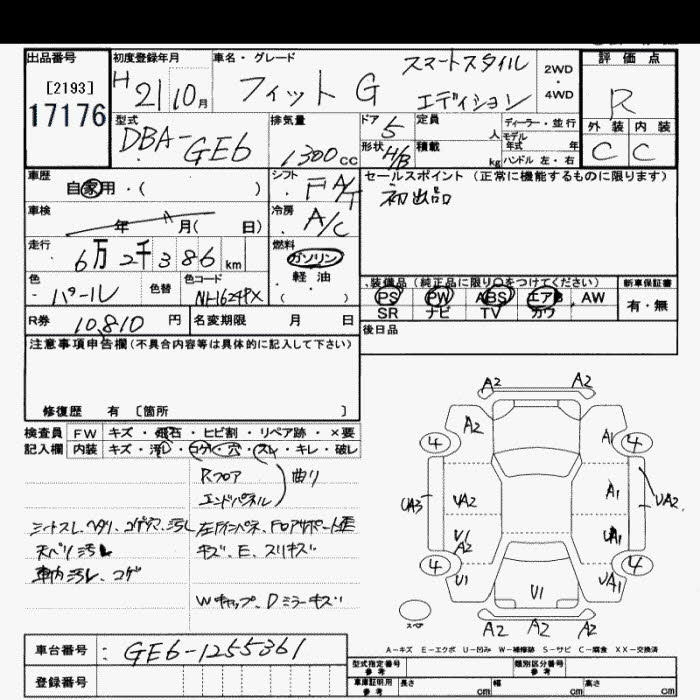 出品番号
[2193]
17176
初度登録年月
H 21 10 月
車名・グレード
フィット G スマートスタイル
エディション
2WD
・
4WD
評価点
R
外装 内装
C C
型式
DBA-GE6
排気量
1300 cc
ドア 5
形状 H/B
定員 人
積載 kg
ディーラー・並行
モデル
年式 年
ハンドル 左・右
車歴
自家用・( )
シフト
FA/T
セールスポイント (正常に機能するものに限ります)
初出品
車検
年 月( 日)
冷房
A/C
走行
6万2千386 km
燃料
ガソリン
・
軽油
( )
色
パール
色替
色コード
NH624PX
装備品(純正品に限り○をつけてください)
PS PW ABS エアB AW
SR ナビ TV カワ
新車保証書
有・無
R券 10,810 円
名変期限 月 日
後日品
注意事項申告欄(不具合内容等は具体的に記入して下さい)
修復歴 有 [箇所 ]
検査員 FW キズ・飛石・ヒビ割・リペア跡・×要
記入欄 内装 キズ・汚レ・コゲ・穴・スレ・キレ・破レ
Rフロア
エンドパネル
曲り
シートスレ、ヘタリ、コゲ穴、汚レ
天ベリ汚レ
キズ、E、スリキズ
車内汚レ、コゲ
Wキャップ、Dミラーキズ
A2 A2
A2 A1
4 4
UA3 UA2 A1 UA2
U1 A2 UA1
4 4
U1 U1 UA1
スペア
A2 A2 A2
A-キズ E-エクボ U-凹み W-補修跡 S-サビ C-腐食 XX-交換済
車台番号 : GE6-1255361
登録番号
型式指定番号
参考
類別区分番号
参考
車庫証明用
参考
長さ cm 幅 cm 高さ cm